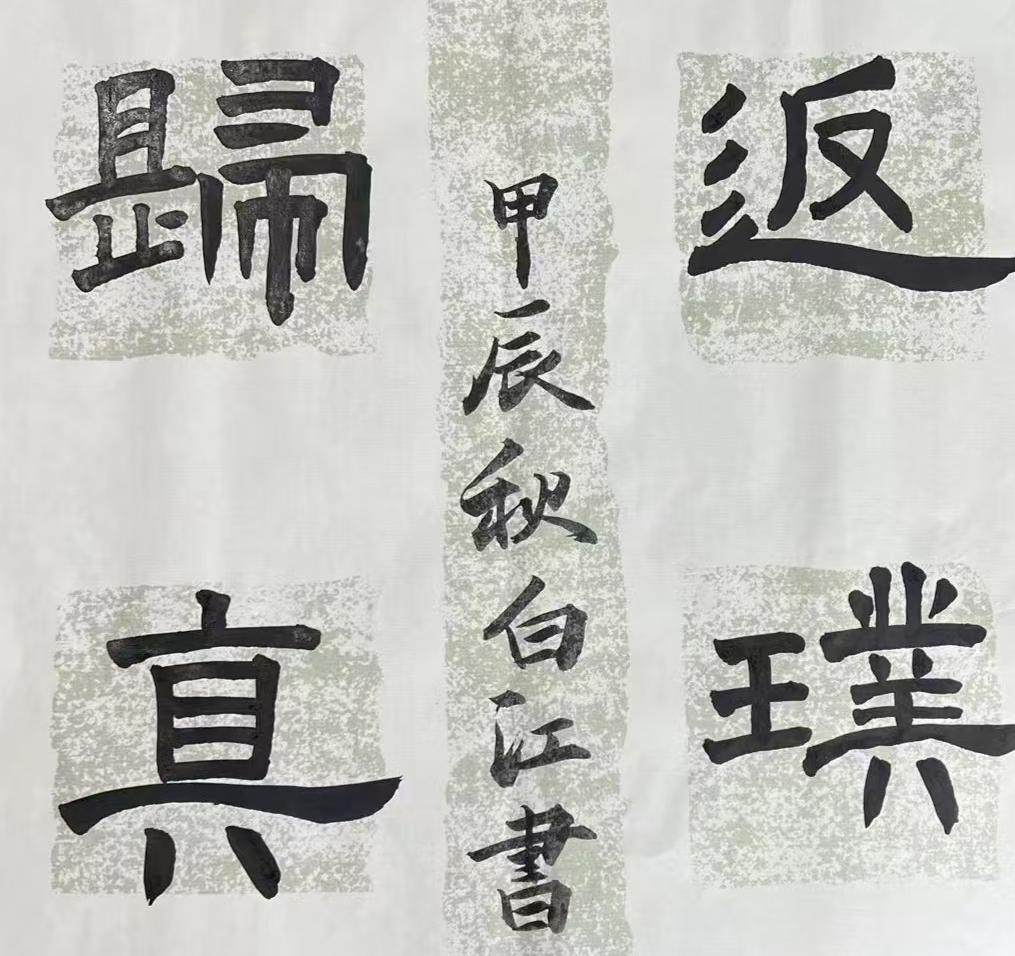 返璞
歸真
甲辰秋白江書